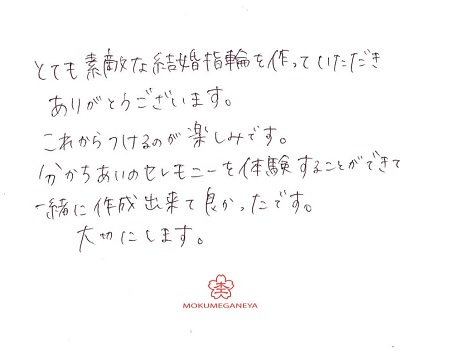 とても素敵な結婚指輪を作っていただき
ありがとうございます。
これからつけるのが楽しみです。
分かちあいのセレモニーを体験することができて
一緒に作成出来て良かったです。
大切にします。
杢
MOKUMEGANEYA